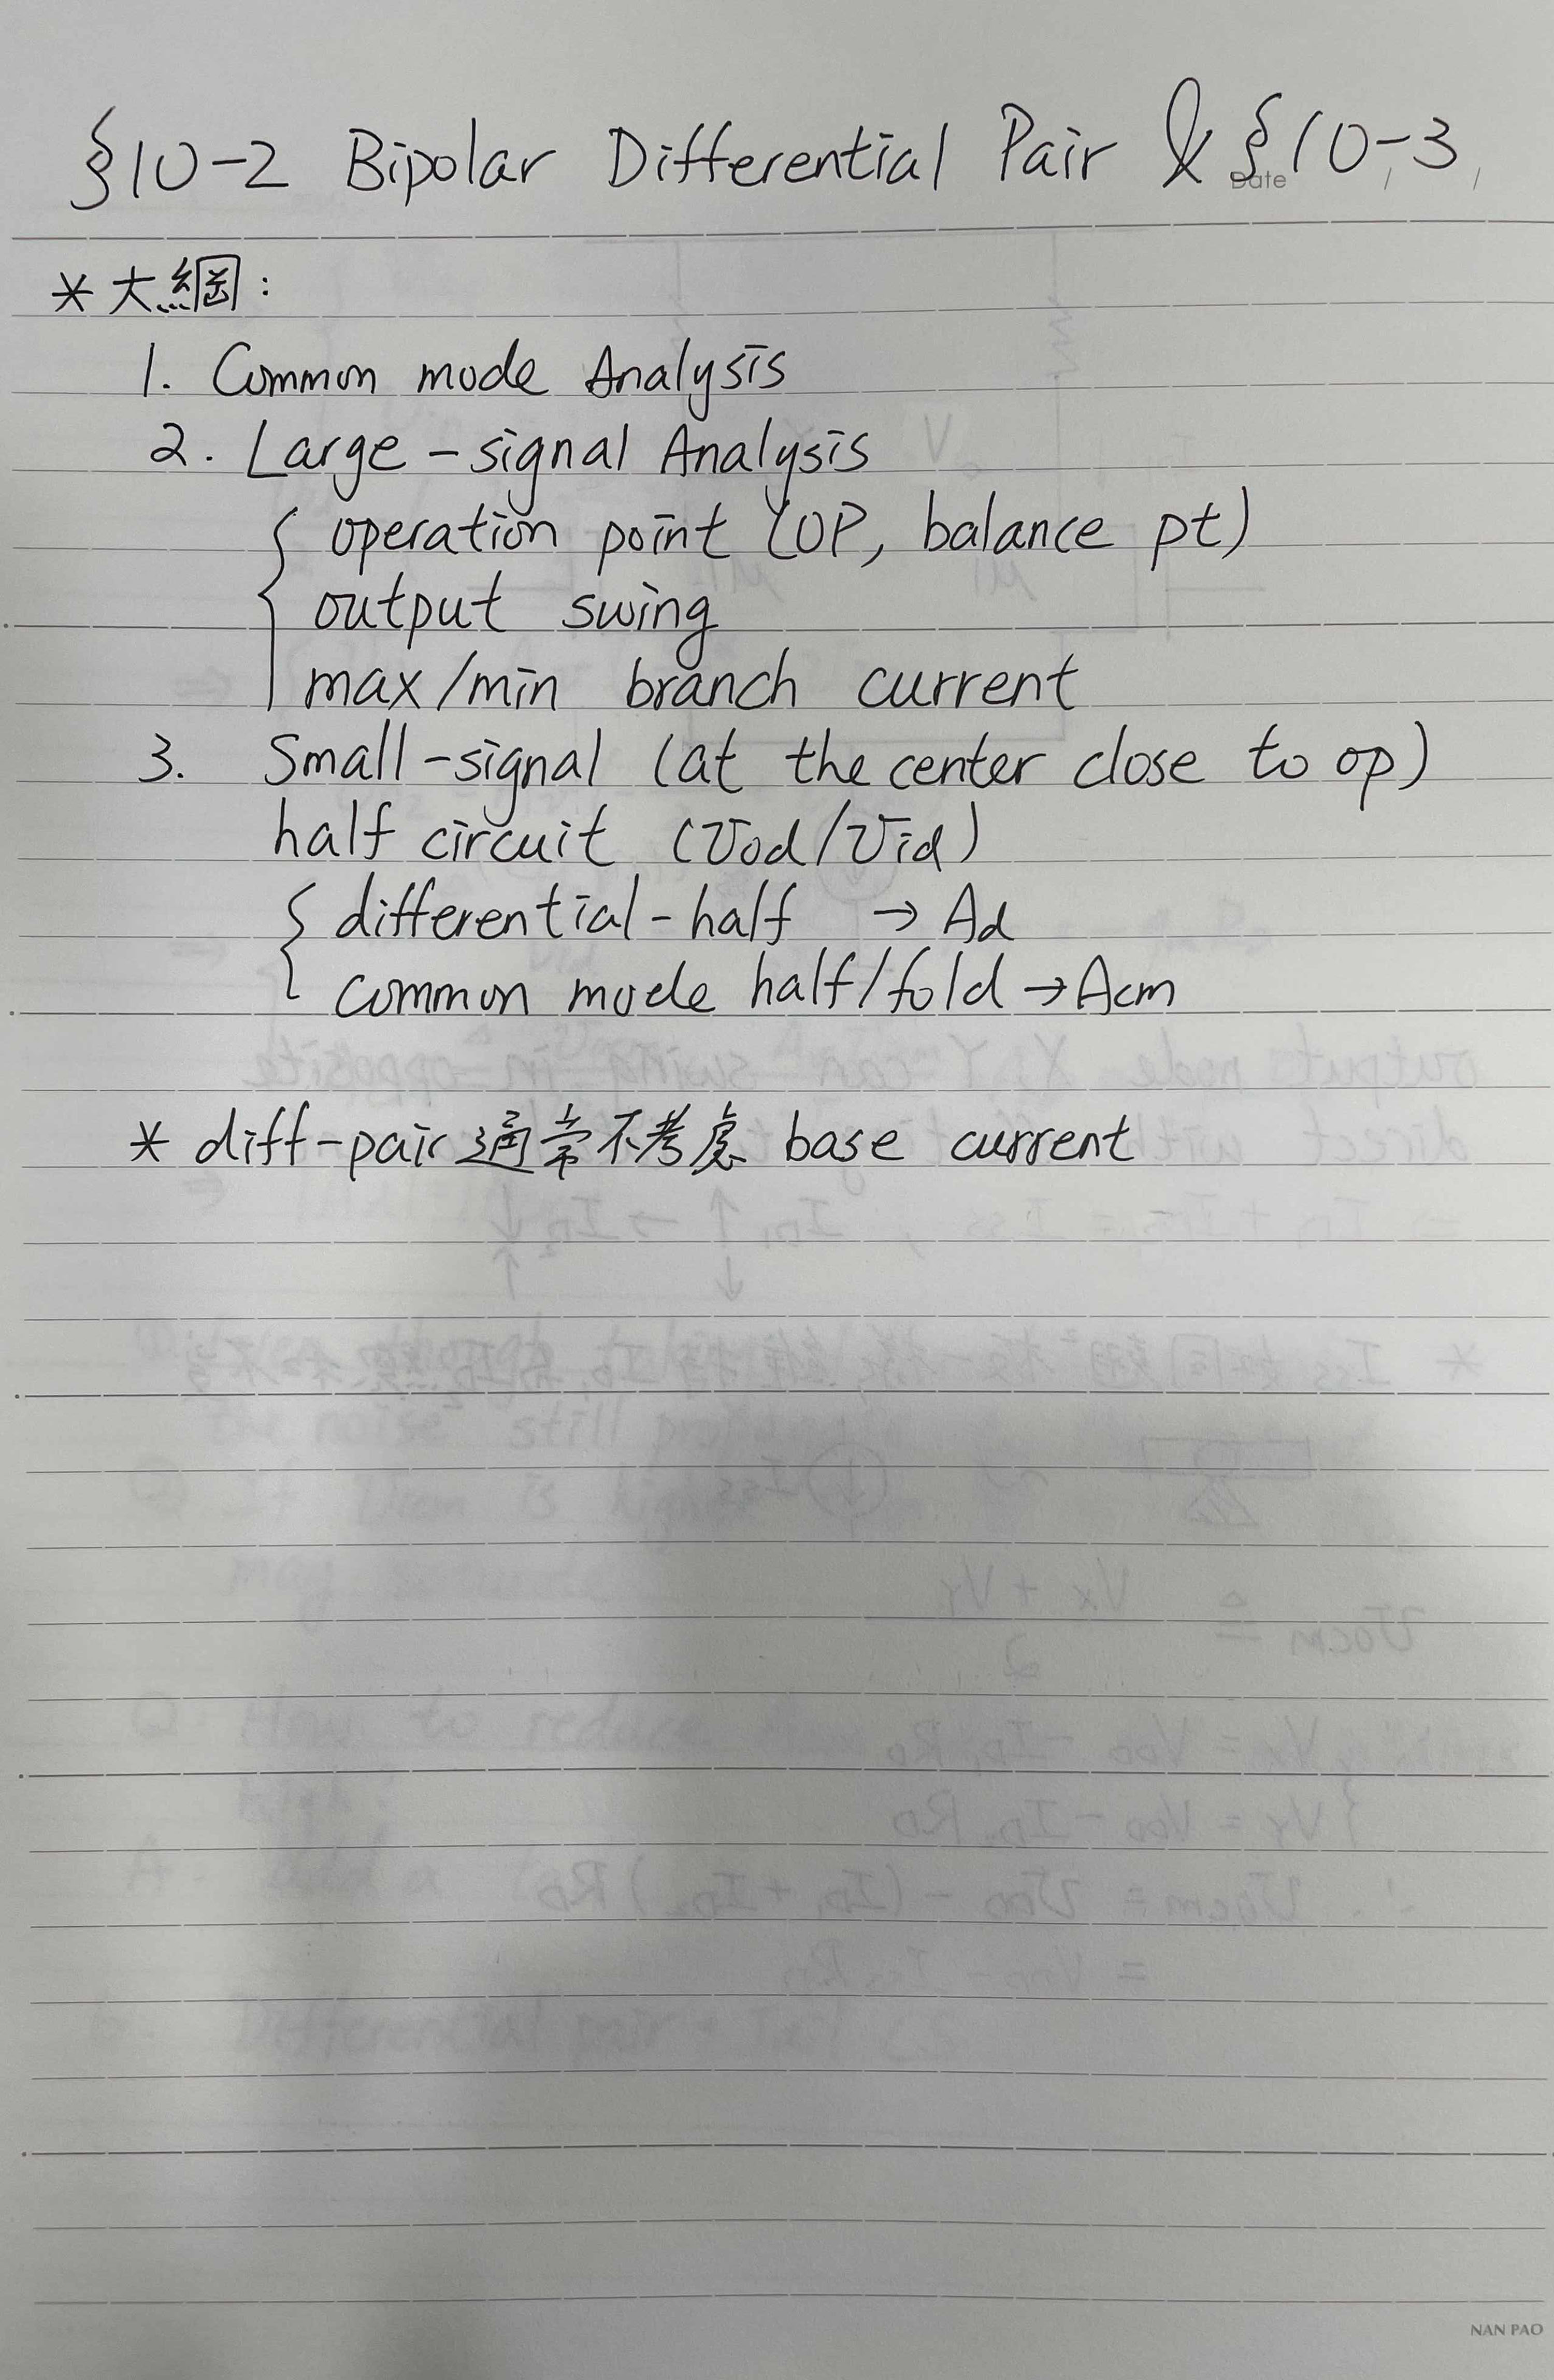 §10-2 Bipolar Differential Pair & §10-3
Date
* 大綱:
1. Common mode Analysis
2. Large-signal Analysis
operation point (OP, balance pt)
output swing
max/min branch current
3. Small-signal (at the center close to op)
half circuit (Vod/Vid)
differential-half → Ad
common mode half/fold → Acm
* diff-pair 通常不考慮 base current
NAN PAO